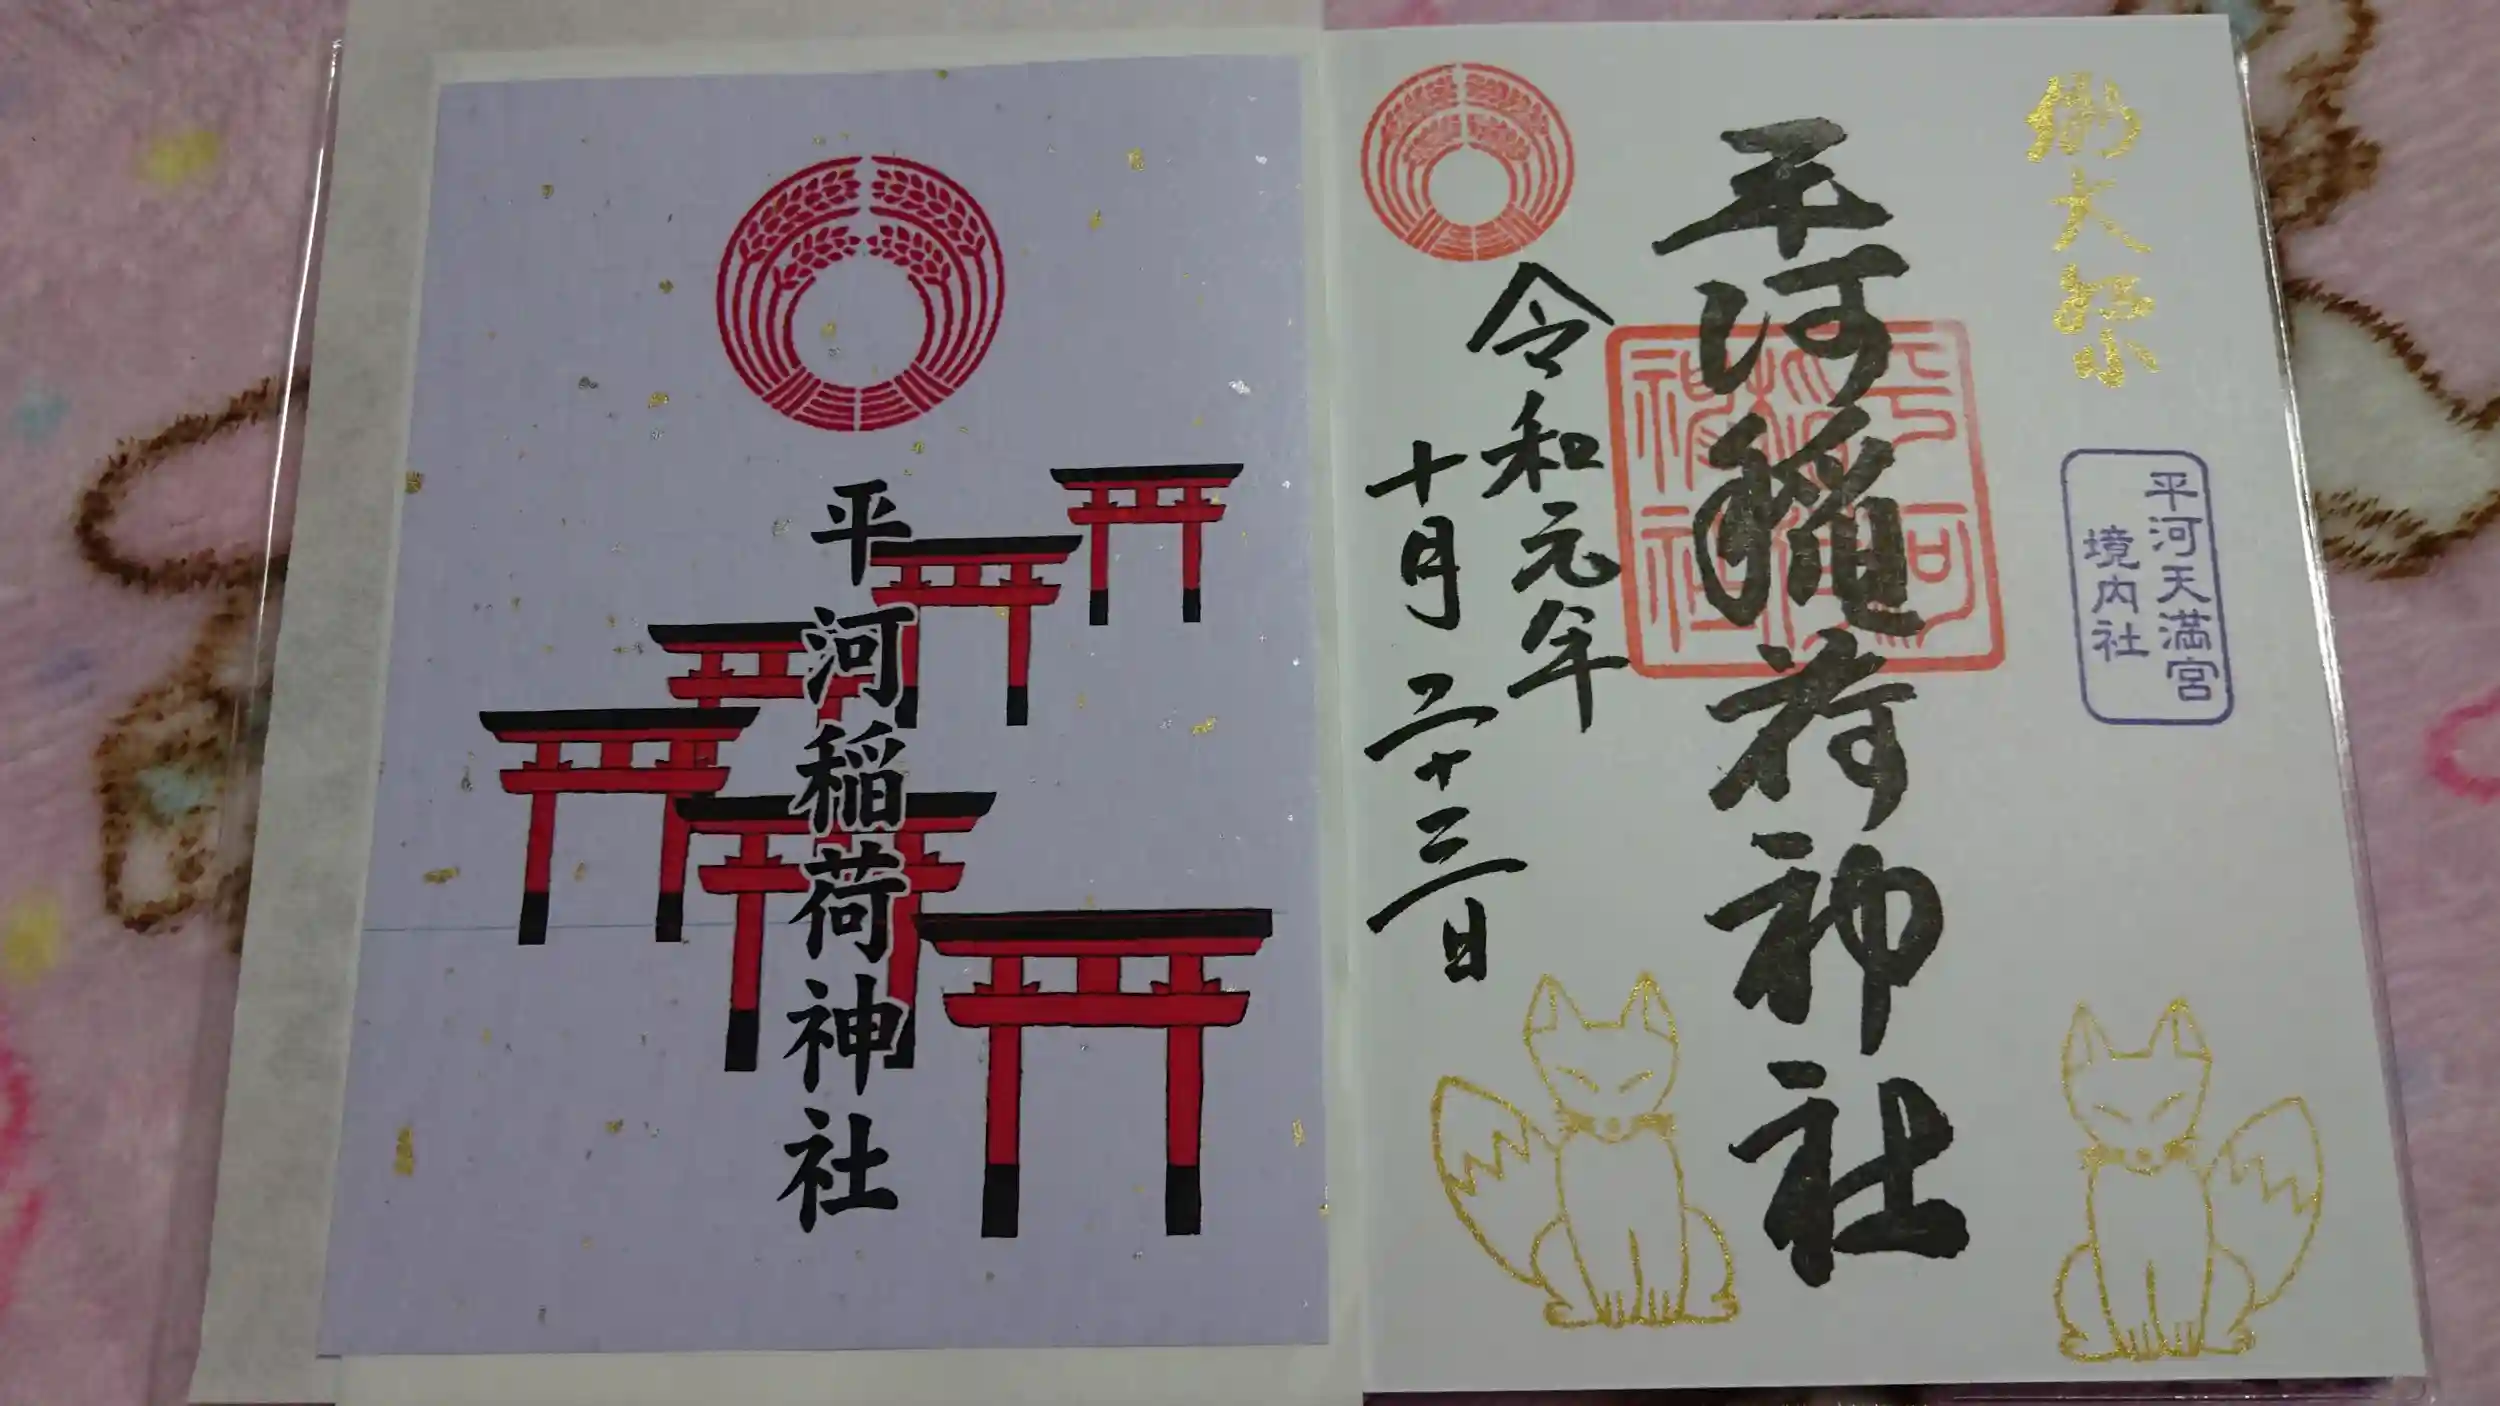 御大祭
平河天満宮
境内社
平河稲荷神社
平河
稲荷
神社
令和元年
十月二十三日
平河稲荷神社